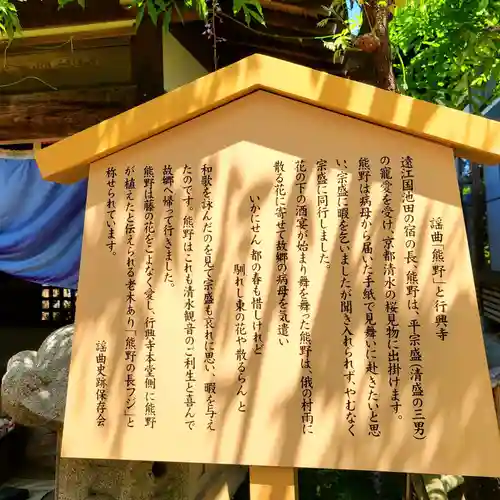 謡曲「熊野」と行興寺
遠江国池田の宿の長、熊野は、平宗盛（清盛の三男）
の寵愛を受け、京都清水の桜見物に出掛けます。
熊野は病母から届いた手紙で見舞いに赴きたいと思
い、宗盛に暇を乞いましたが聞き入れられず、やむなく
宗盛に同行しました。
花の下の酒宴が始まり舞を舞った熊野は、俄の村雨に
散る花に寄せて故郷の病母を気遣い
いかにせん 都の春も惜しけれど
馴れし東の花や散るらん と
和歌を詠んだのを見て宗盛も哀れに思い、暇を与え
たのです。熊野はこれも清水観音のご利生と喜んで
故郷へ帰って行きました。
熊野は藤の花をこよなく愛し、行興寺本堂側に熊野
が植えたと伝えられる老木あり「熊野の長フジ」と
称せられています。
謡曲史跡保存会